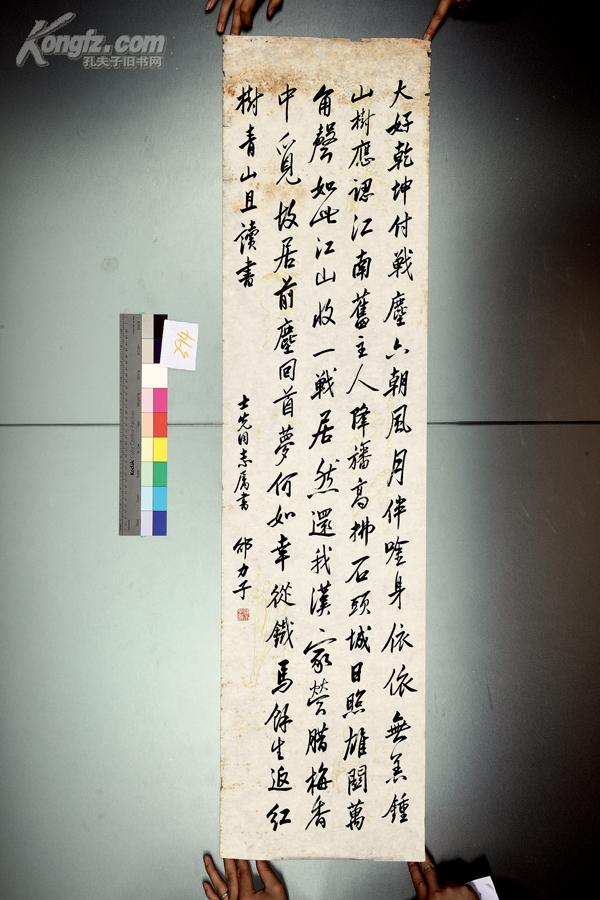 Kongfz.com
孔夫子旧书网
大好乾坤付戰塵六朝風月伴唫身依依無恙鍾
山樹應認江南舊主人降旛高拂石頭城日照雄關萬
角聲如此江山收一戰居然還我漢家營腊梅香
中覓故居前塵回首夢何如幸從鐵馬餘生返紅
樹青山且讀書
士先同志屬書
邵力子
Kodak